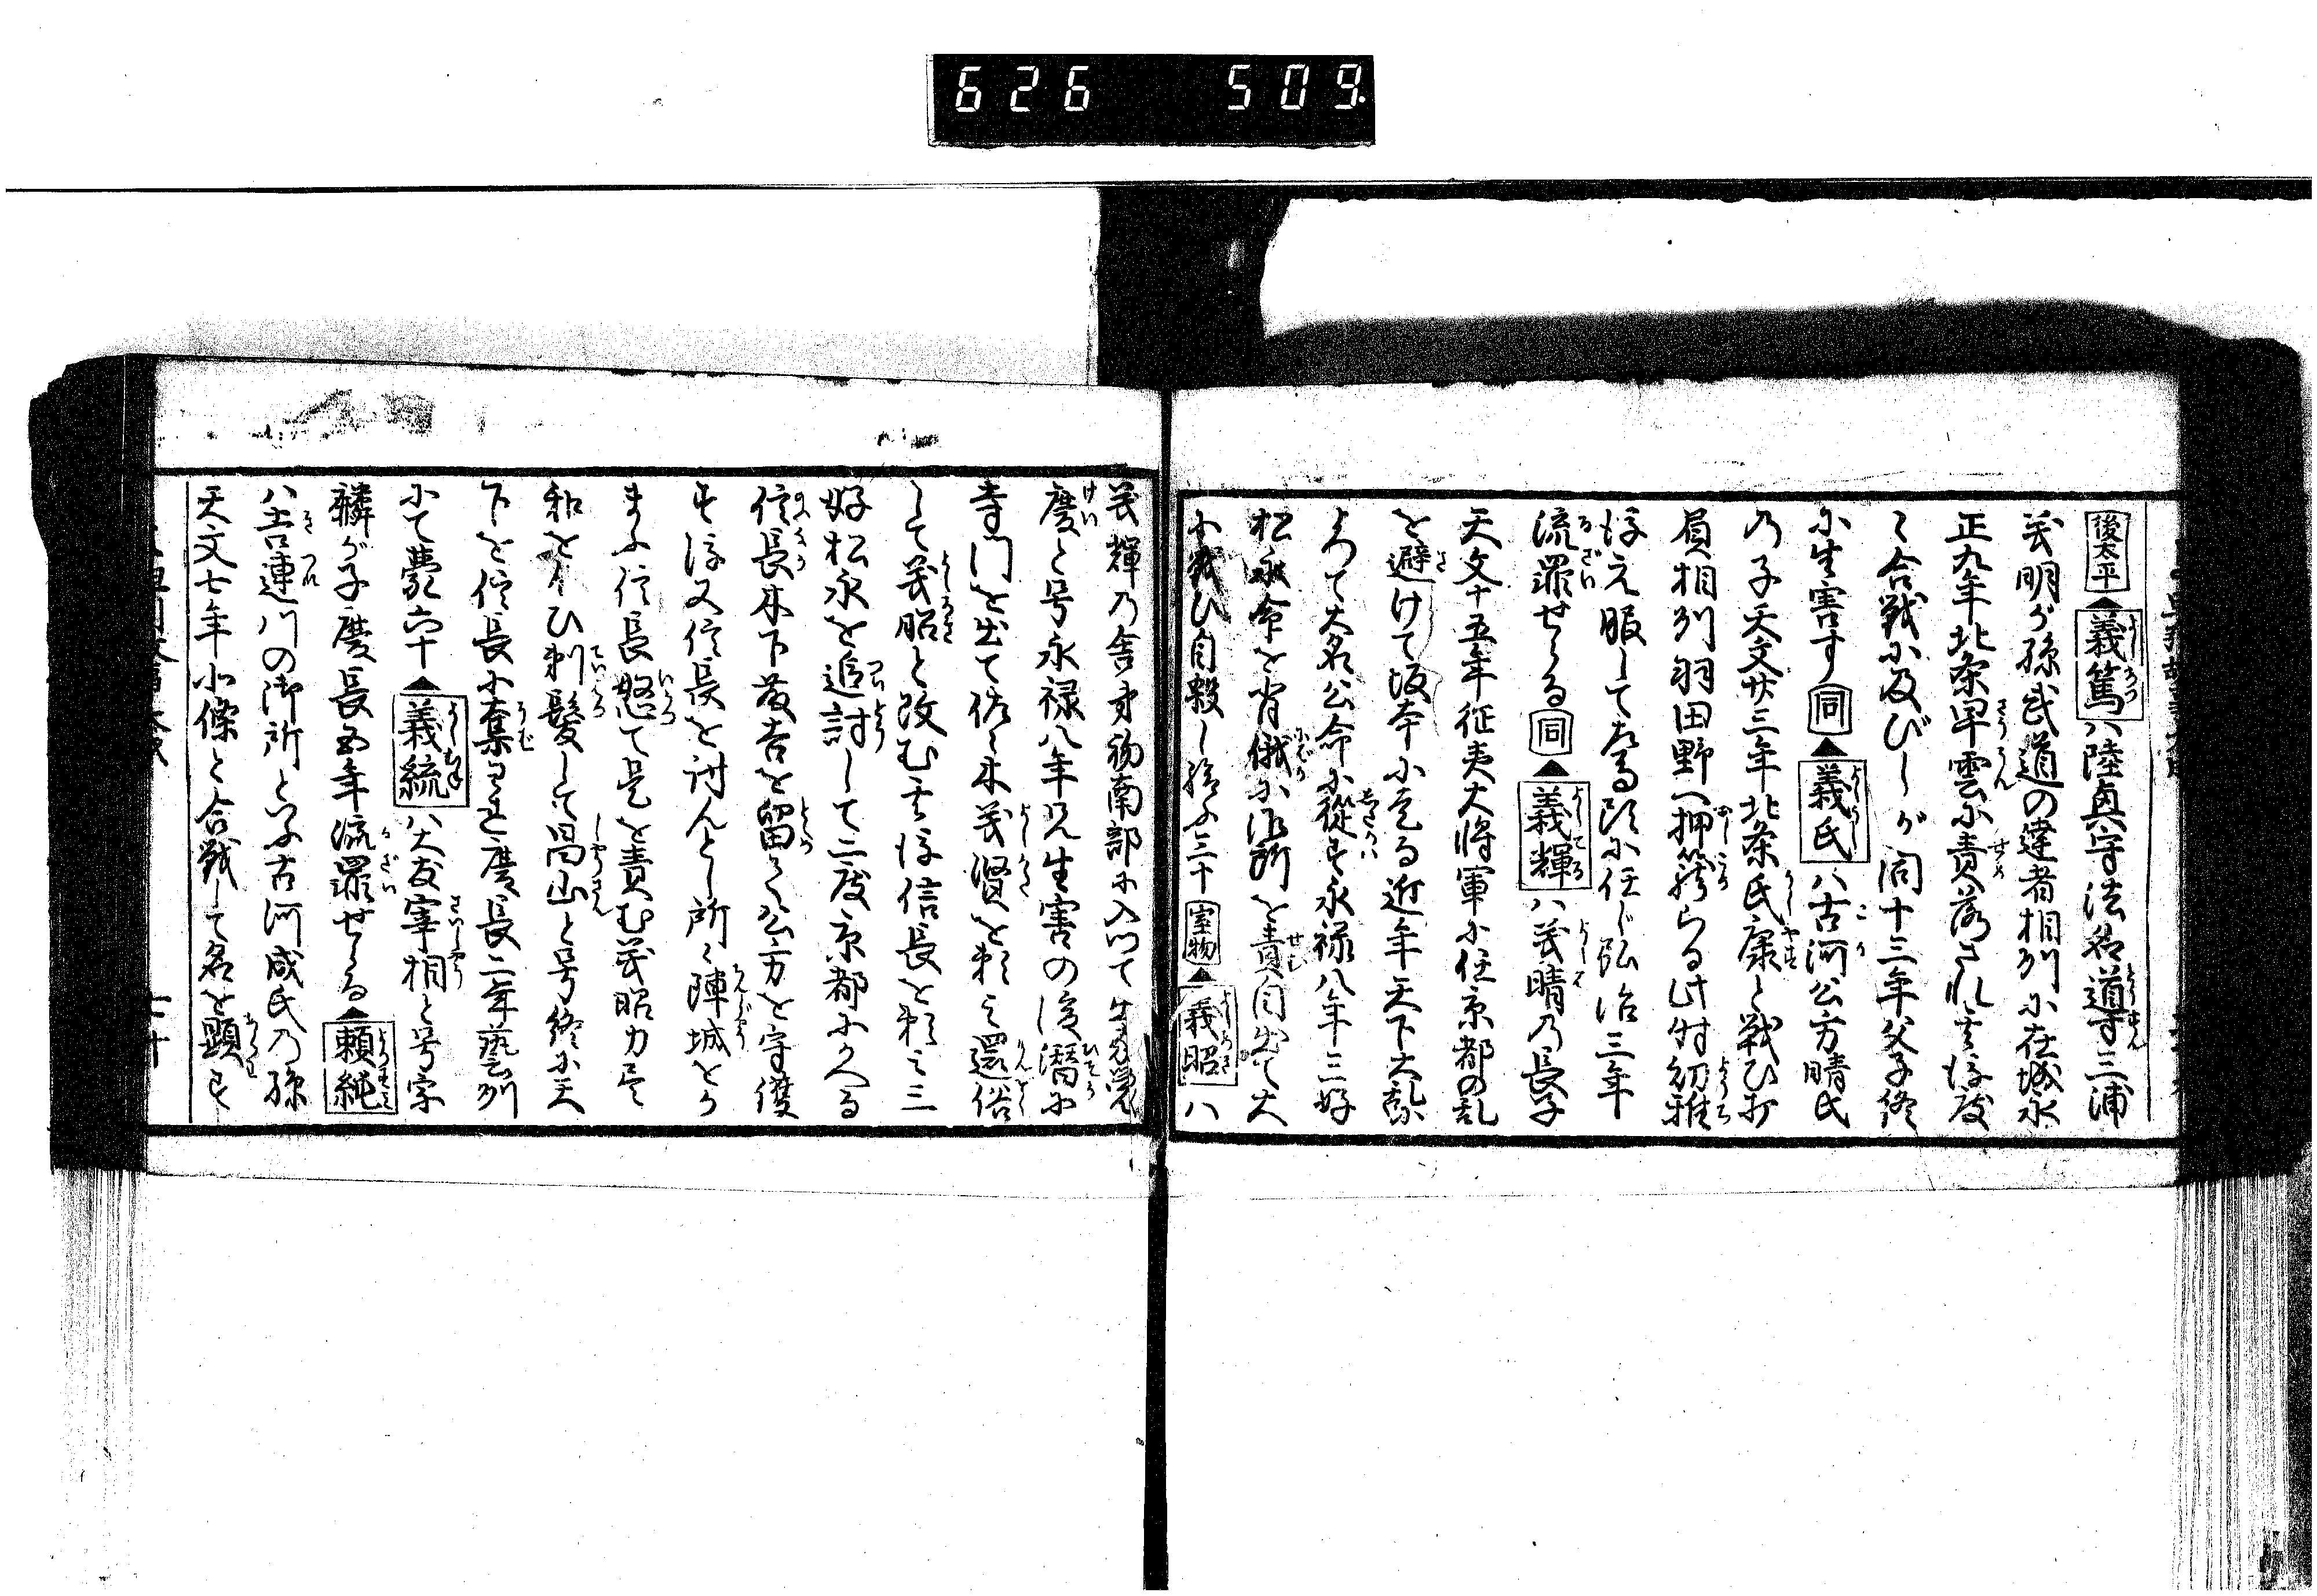 626 509
後太平▲義篤ハ陸奥守法名道寸三浦
義明が孫武道の達者相刕に在城永
正九年北条早雲に責落され其後度
〻合戦に及びしが同十三年父子終
に生害す同▲義氏ハ古河公方晴氏
の子天文廿三年北条氏康と戦ひ打
負相刕羽田野へ押篭らる此時幼稚
後元服して左馬頭に任じ弘治三年
流罪せらる同▲義輝ハ義晴の長子
天文十五年征夷大将軍に任京都の乱
を避けて坂本に走る近年天下大乱
よつて大名公命に従ず永禄八年三好
松永命を背俄に御所を責自出て大
に戦ひ自殺し給ふ三十室物▲義昭ハ
義輝の舎弟初南部に入つて
慶と号永禄八年兄生害の後潜に
寺門を出て佐〻木義賢を頼み還俗
して義昭と改む其後信長を頼み三
好松永を追討して二度京都にかへる
信長木下藤吉を留て公方を守護
す後又信長を討んとし所〻陣城をか
まふ信長怒て是を責む義昭力尽
和をこひ剃髪して昌山と号終に天
下を信長に奪はる慶長二年藝刕
にて薨六十▲義統ハ大友宰相と号宗
麟が子慶長五年流罪せらる▲頼純
ハ吉連川の御所といふ古河成氏の孫
天文七年小條と合戦して名を顕す